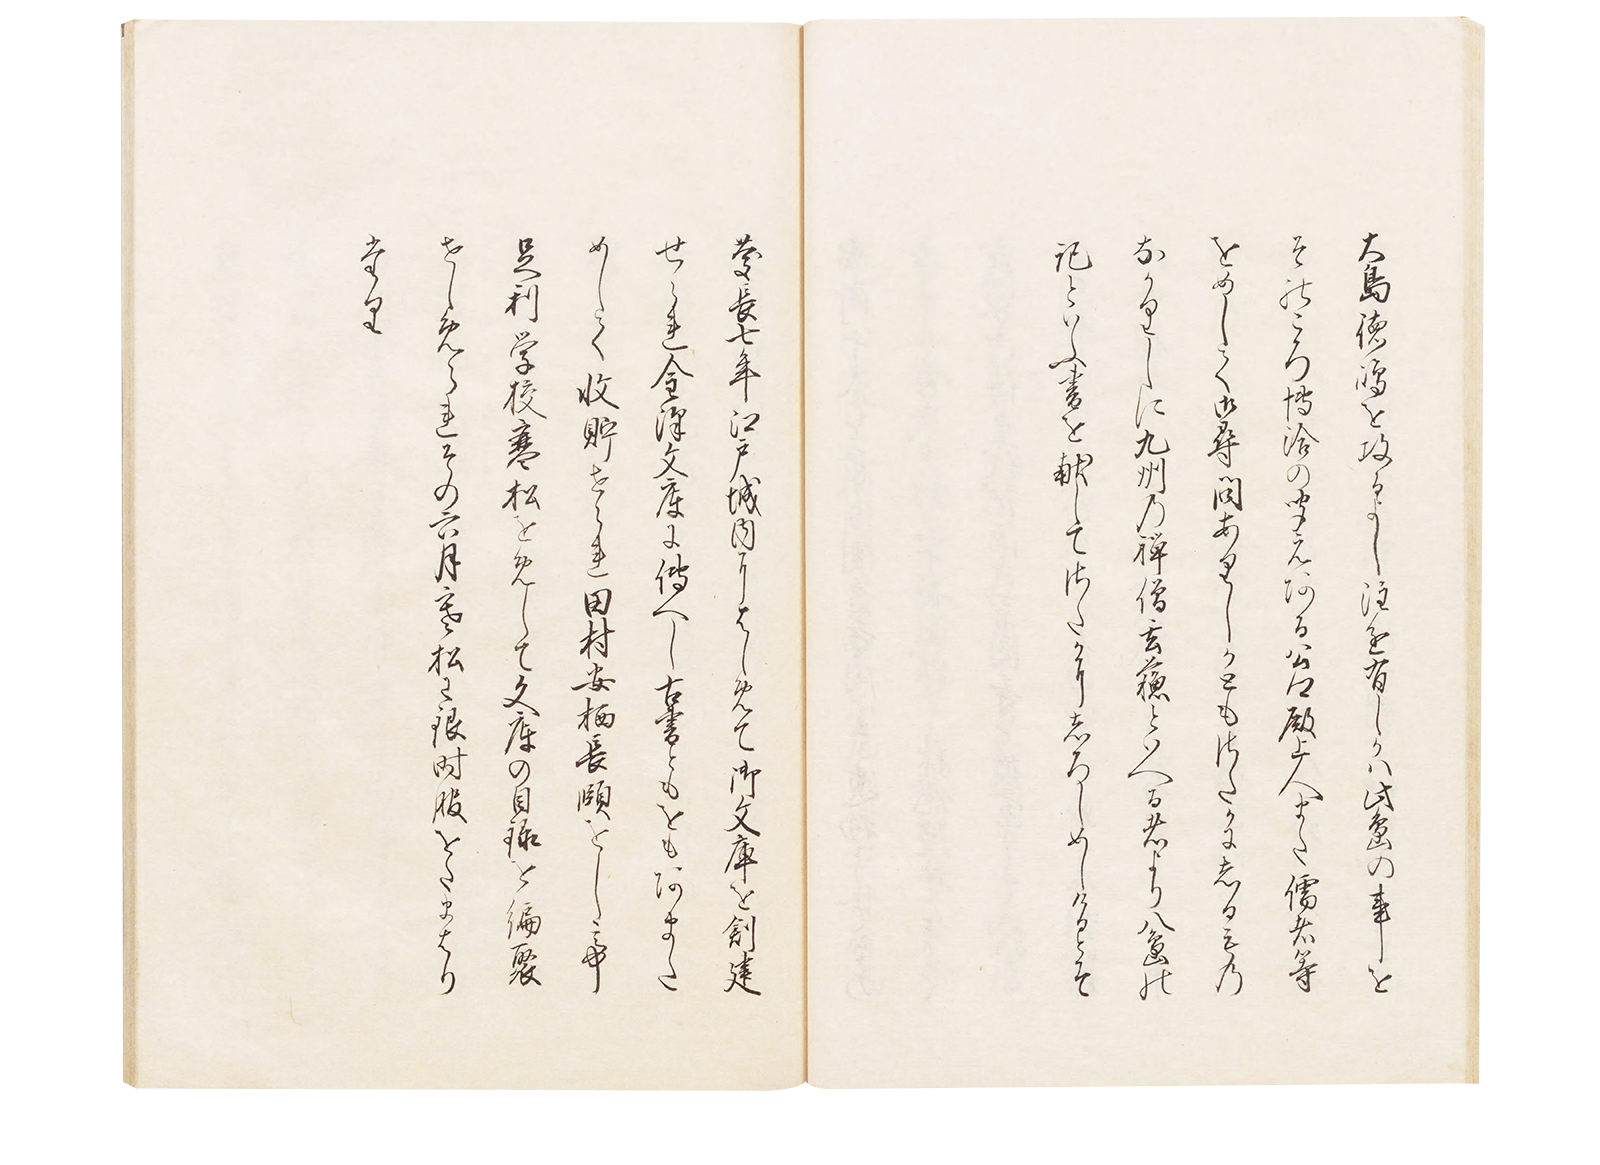 大島徳鴻を攻よし注進有しかは此島の事を
そのころ博洽の聞えある公卿殿上人また儒者等
をめして御尋問ありしかとも詳かに志る毛乃
なかりしに九州乃禅僧玄蘓といへる者より八島の
記といふ書を献して詳かに志ろしめしけるとそ
慶長七年江戸城内にをしめて御文庫を創建
せられ金澤文庫に傳へし古書ともをもあまた
めして收貯せられ田村安栖長頤をしてこ
足利学校寒松をめして文庫の目録を編聚
せしめられその六月寒松に銀時服をたまはり
たり